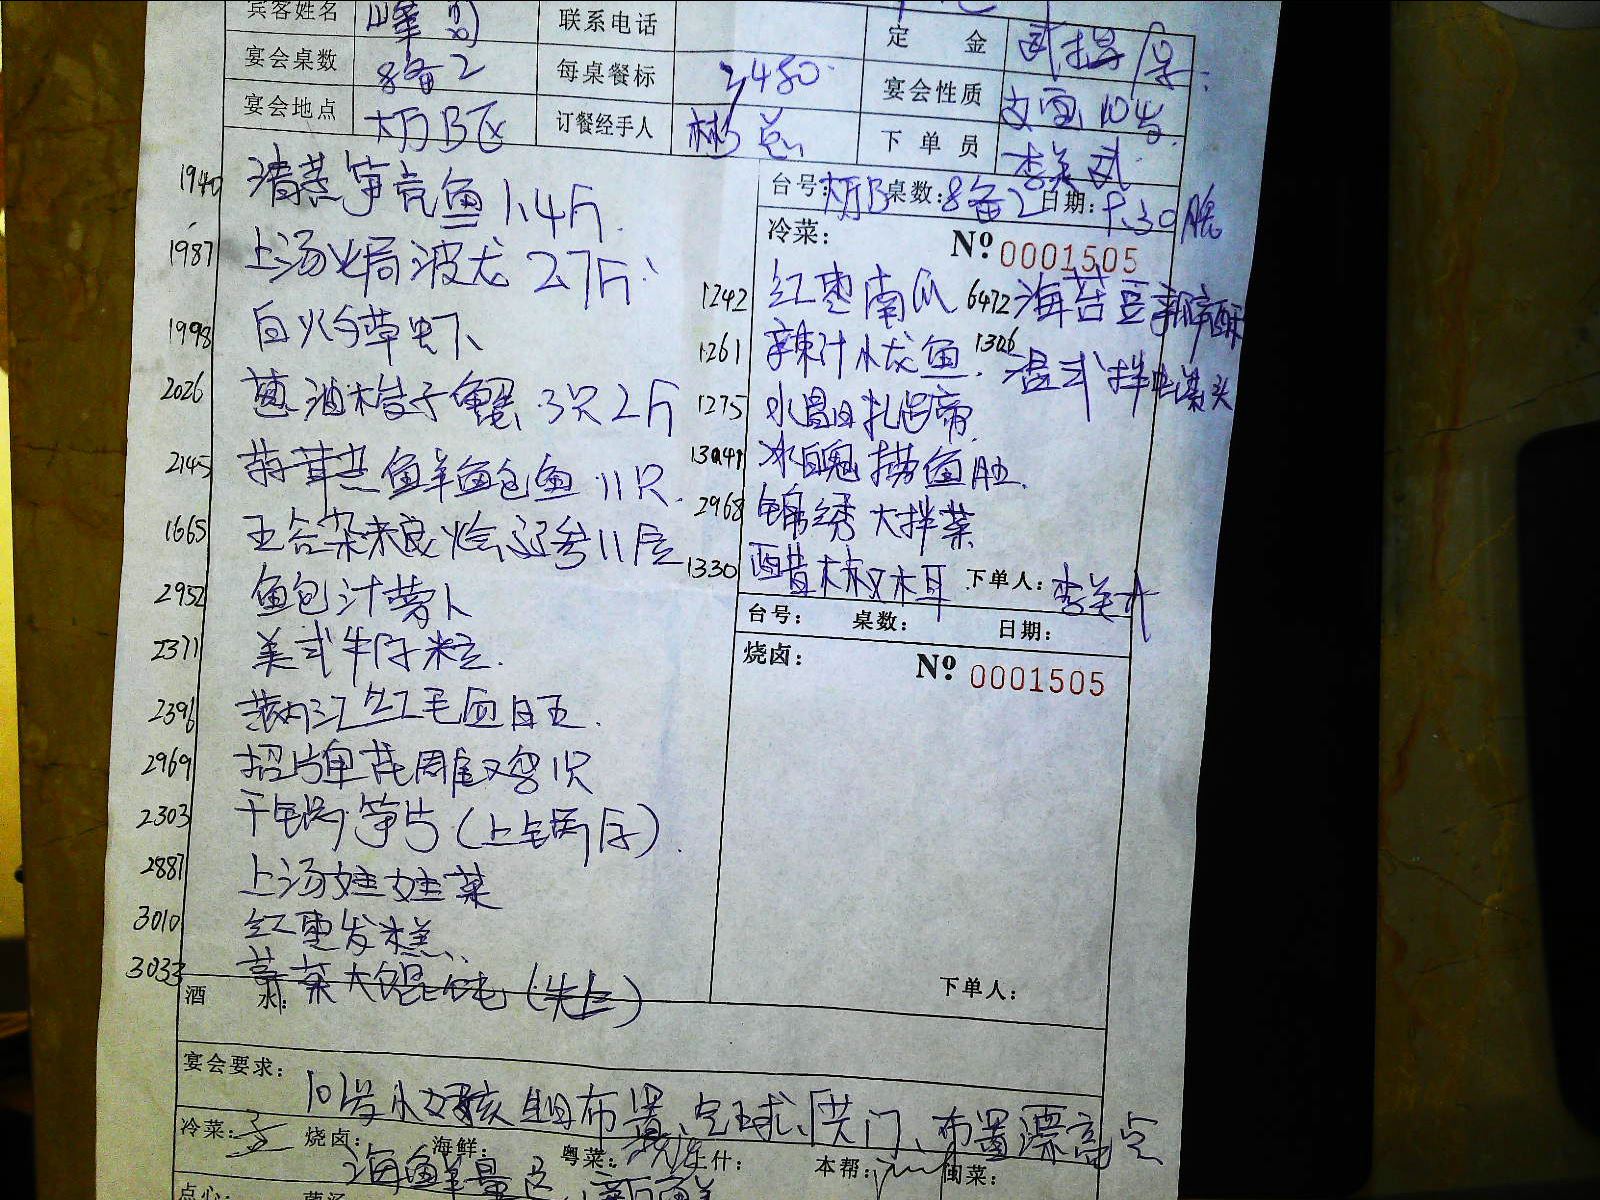 宾客姓名 峰 联系电话 定 金
宴会桌数 8备2 每桌餐标 2480 宴会性质 10岁
宴会地点 大厅B区 订餐经手人 林总 下 单 员 李美
台号: 大厅B 桌数: 8备2 日期: 9.30晚
1940 清蒸笋壳鱼 1.4斤
1987 上汤焗波龙 2.7斤
1998 白灼草虾
2026 葱油梭子蟹 3只2斤
2145 蒜茸蒸鲜鲍鱼 11只
1665 五谷杂粮烩辽参 11位
2952 鲍汁萝卜
2371 美式牛仔粒
2396 红毛血旺
2969 招牌 鸡1只
2303 干锅笋片 (上锅仔)
2887 上汤娃娃菜
3010 红枣发糕
3033 荠菜大馄饨 (先上)
冷菜: Nº 0001505
1242 红枣南瓜 6472 海苔豆瓣酥
1261 辣汁小龙鱼 1306 温式拌 头
1275 水晶扎蹄
捞鱼肚
2968 锦绣大拌菜
1330 醋椒木耳 下单人: 李美
台号: 桌数: 日期:
烧卤: Nº 0001505
下单人:
酒 水:
宴会要求: 10岁小女孩 布置、气球、拱门、布置漂亮点
冷菜: 烧卤: 海鲜: 粤菜: 上什: 本帮: 闽菜:
海鲜量足、新鲜
点心: